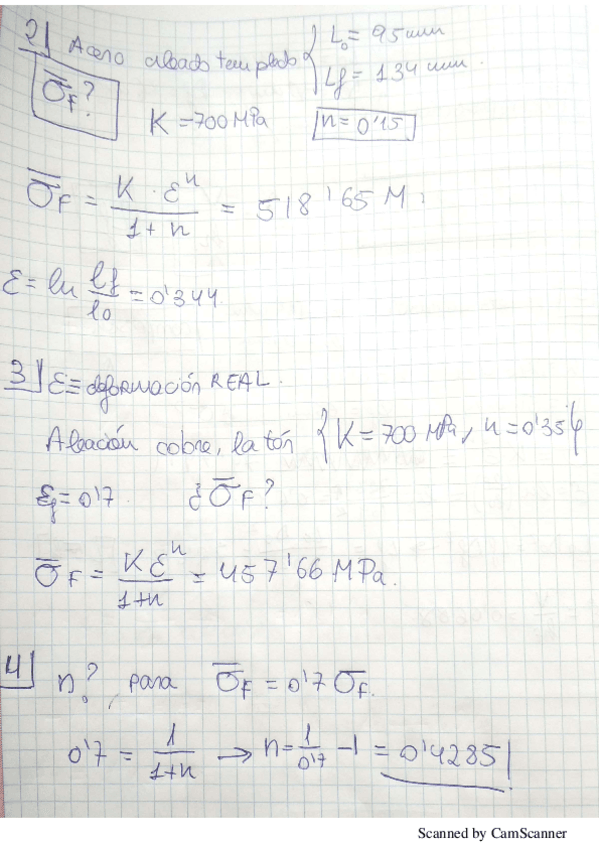 2| Acero aleado templado { L₀ = 95 mm
Lf = 134 mm.
σ̅F?
K = 700 MPa n = 0'15
σ̅F = K · εⁿ / 1 + n = 518'65 M
ε = ln lf / l0 = 0'344
3| ε ≡ deformación REAL.
Aleación cobre, latón { K = 700 MPa, n = 0'35
εf = 0'7 ¿σ̅F?
σ̅F = Kεⁿ / 1+n = 457'66 MPa.
4| n?, para σ̅F = 0'7 σ̅F.
0'7 = 1 / 1+n → n = 1 / 0'7 - 1 = 0'4285
Scanned by CamScanner